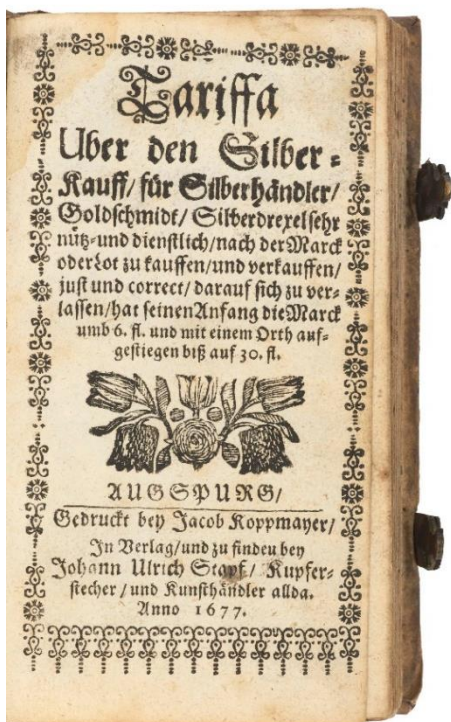 Tariffa
Uber den Silber-
Kauff/ für Silberhändler/
Goldschmidt/ Silberdrexel sehr
nütz- und dienstlich/ nach der Marck
oder Lot zu kauffen/ und verkauffen/
just und correct/ darauf sich zu ver-
lassen/ hat seinen Anfang die Marck
umb 6. fl. und mit einem Orth auf-
gestiegen biß auf 30. fl.
AUGSPURG/
Gedruckt bey Jacob Koppmayer/
In Verlag/ und zu finden bey
Johann Ulrich Stapf/ Kupfer-
stecher/ und Kunsthändler allda.
Anno 1677.